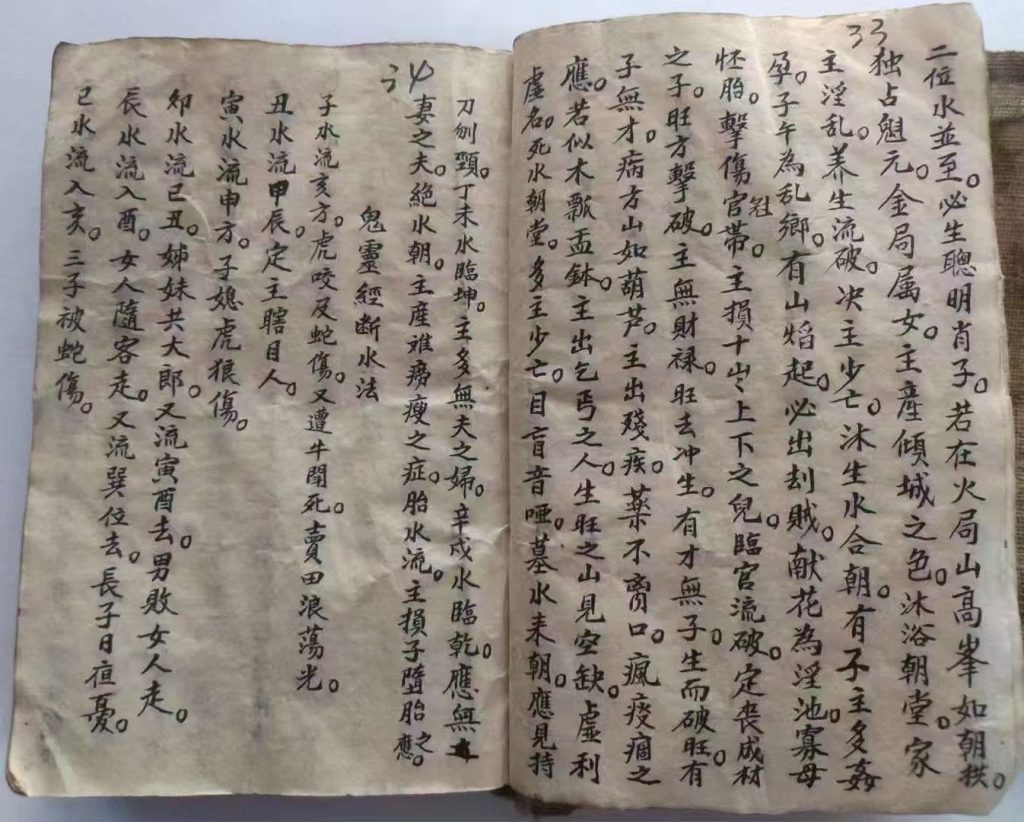 33
二位水並至。必生聰明肖子。若在火局山高峯如朝拱。
独占魁元。金局属女。主產傾城之色。沐浴朝堂。家
主淫乱。养生流破。决主少亡。沐生水合朝。有子主多姦
孕。子午為乱鄉。有山焰起。必出刦贼。献花為淫池。寡母
怀胎。擊傷官冠帶。主損十山上下之兒。臨官流破。定丧成材
之子。旺方擊破。主無財禄。旺去冲生。有才無子。生而破旺。有
子無才。病方山如葫芦。主出殘疾。藥不离口。瘋痰痼之
應。若似木瓢盂鉢。主出乞丐之人。生旺之山見空缺。虛利
虛名。死水朝堂。多主少亡。目盲音哑。墓水来朝。應見持
34
刀刎頸。丁未水臨坤。主多無夫之婦。辛戌水臨乾。應無
妻之夫。絶水朝。主產难痨瘦之症。胎水流。主損子墮胎之應。
鬼靈經断水法
子水流亥方。虎咬及蛇傷。又遭牛鬥死。賣田浪蕩光。
丑水流甲辰。定主瞎目人。
寅水流申方。子媳虎狼傷。
夘水流巳丑。姊妹共大郎。又流寅酉去。男敗女人走。
辰水流入酉。女人隨客走。又流巽位去。長子日疸憂。
巳水流入亥。三子被蛇傷。